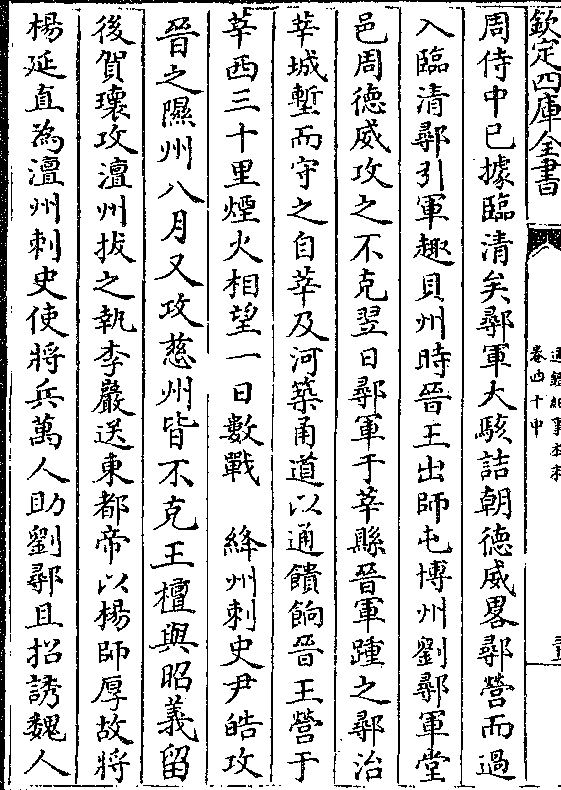 欽定四庫全書
通鑑紀事本末
卷四十中
周侍中已據臨清矣鄩軍大駭詰朝德威畧鄩營而過
入臨清鄩引軍趣貝州時晉王出師屯博州劉鄩軍堂
邑周德威攻之不克翌日鄩軍于莘縣晉軍踵之鄩治
莘城塹而守之自莘及河築甬道以通饋餉晉王營于
莘西三十里煙火相望一日數戰　絳州刺史尹皓攻
晉之隰州八月又攻慈州皆不克王檀與昭義留
後賀瓌攻澶州拔之執李巖送東都帝以楊師厚故將
楊延直為澶州刺史使將兵萬人助劉鄩且招誘魏人